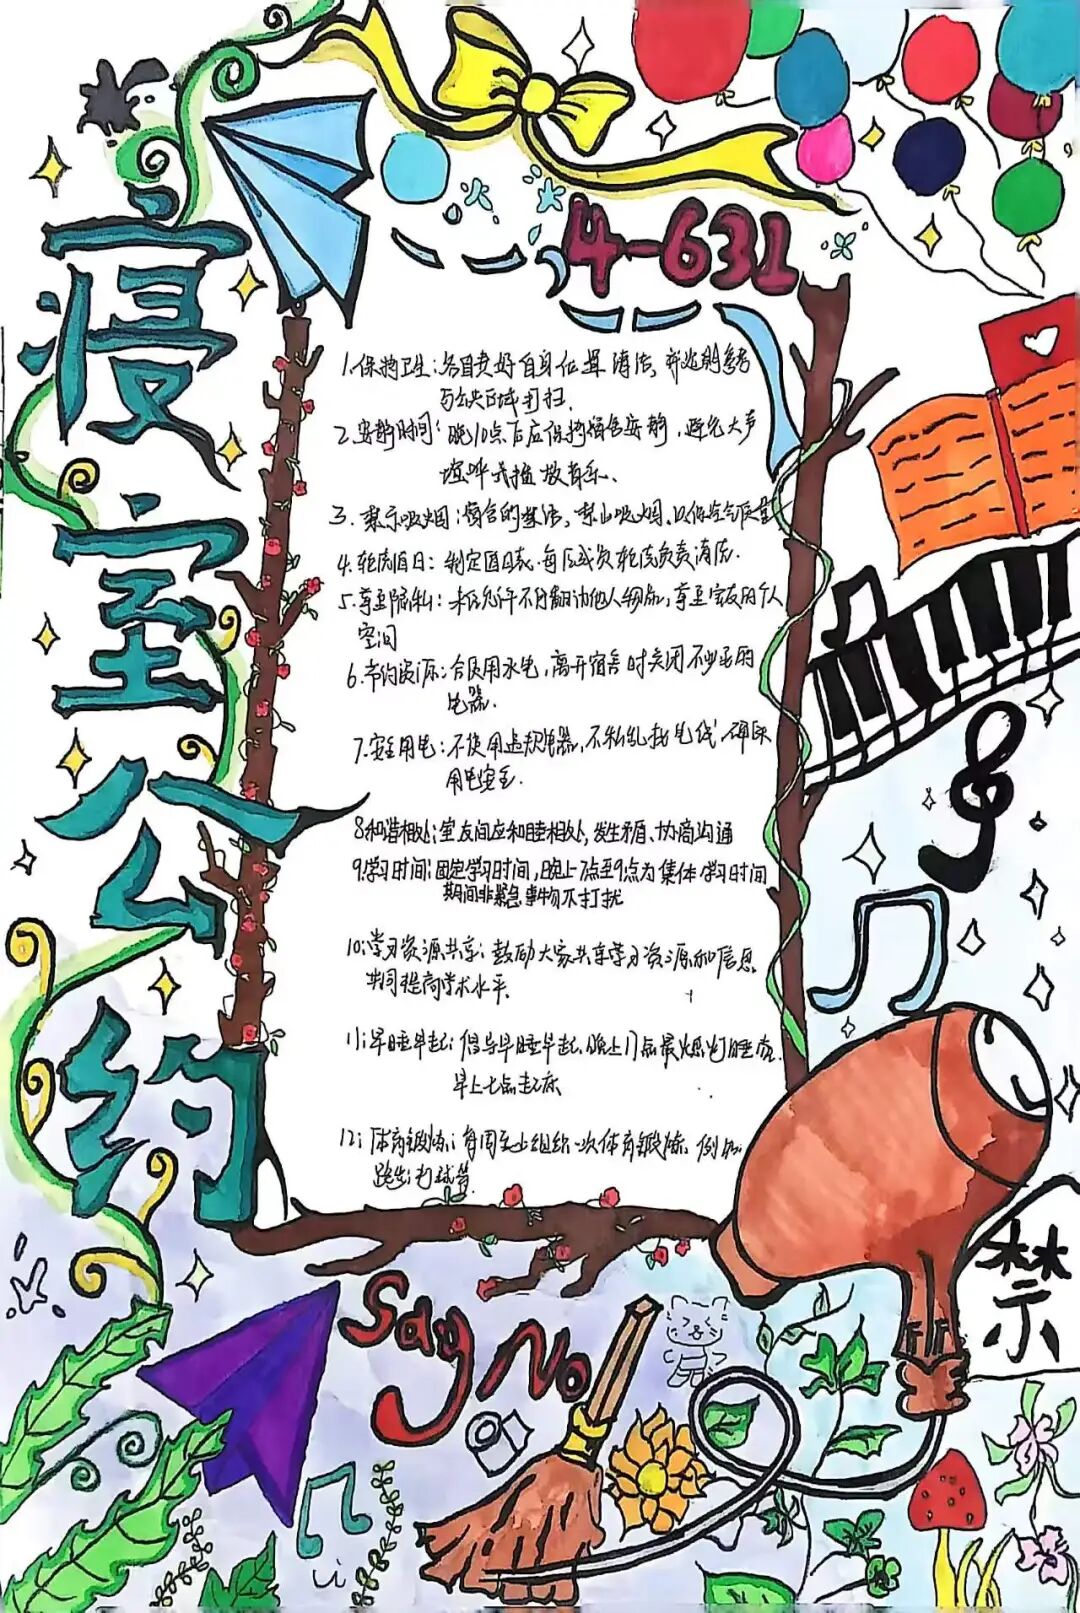 寝室公约
4-631
1.保持卫生:各自负好自身位置清洁,并定期参与
公共区域打扫.
2.安静时间:晚10点后应保持宿舍安静,避免大声
喧哗或播放音乐.
3.禁示吸烟:宿舍的整洁,禁止吸烟,以保空气质量
4.轮流值日:制定值日表,每层成员轮流负责清洁.
5.尊重隐私:未经允许不得翻动他人物品,尊重室友的个人
空间
6.节约资源:合理使用水电,离开宿舍时关闭不必要的
电器.
7.安全用电:不使用违规电器,不私乱接电线,确保
用电安全.
8.和谐相处;室友间应和睦相处,发生矛盾、协商沟通
9.学习时间;固定学习时间,晚上7点至9点为集体学习时间
期间非紧急事物不打扰
10;学习资源共享;鼓励大家共享学习资源和信息
共同提高学术水平.
11;早睡早起;倡导早睡早起,晚上11点最晚时睡觉.
早上七点起床
12;体育锻炼;每周至少组织一次体育锻炼,例如
跑步;打球等
Say No
禁